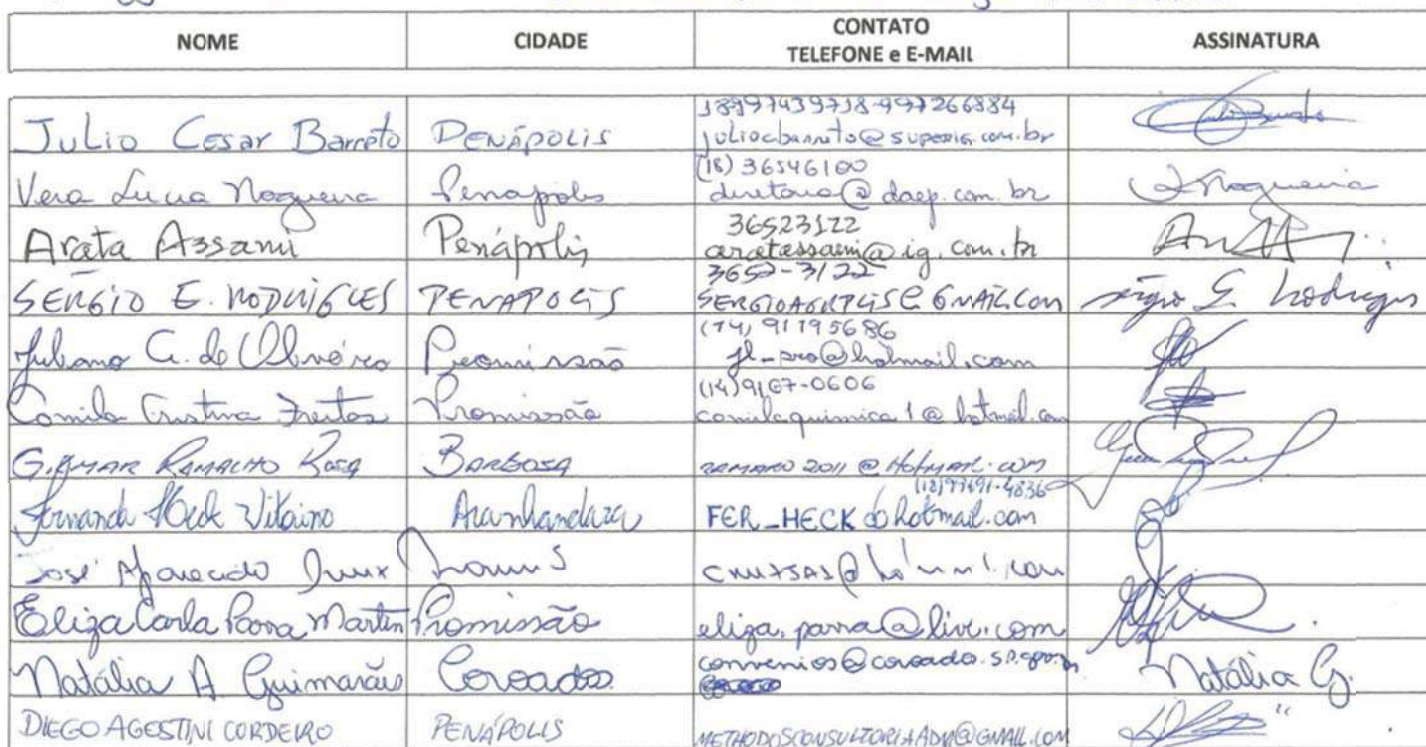 NOME CIDADE CONTATO TELEFONE e E-MAIL ASSINATURA
Julio Cesar Barreto PENÁPOLIS 18997439718-997266884
juliocbarreto@superig.com.br
Vera Lucia Nogueira Penapolis (18) 36546100
diretoria@daep.com.br Nogueira
Arata Assami Penápolis 36523122
arataassami@ig.com.br
SERGIO E. RODRIGUES PENAPOLIS 3652-3122
SERGIO E. Rodrigues
Juliano C. de Oliveira Promissão (14) 91195686
jl-pro@hotmail.com
Camila Cristina Freitas Promissão (14)9167-0606
camilaquimica1@hotmail.com
GILMAR RAMALHO ROSA BARBOSA 2011@HOTMAIL.COM
Fernanda Heck Vitorino Avanhandava (18)99691-4836
FER_HECK@hotmail.com
José Aparecido
Eliza Carla Parra Martin Promissão eliza.parra@live.com
Natália A. Guimarães Coroados convenios@coroados.sp.gov.br Natália G.
DIEGO AGESTINI CORDEIRO PENÁPOLIS METHODOSCONSULTORIAADM@GMAIL.COM